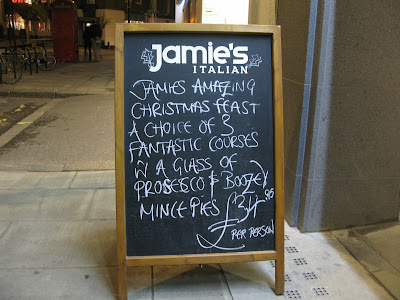 Jamie's
ITALIAN
JAMIES AMAZING
CHRISTMAS FEAST
A CHOICE OF 3
FANTASTIC COURSES
W A GLASS OF
PROSECCO & BOOZEY
MINCE PIES £24.95
PER PERSON